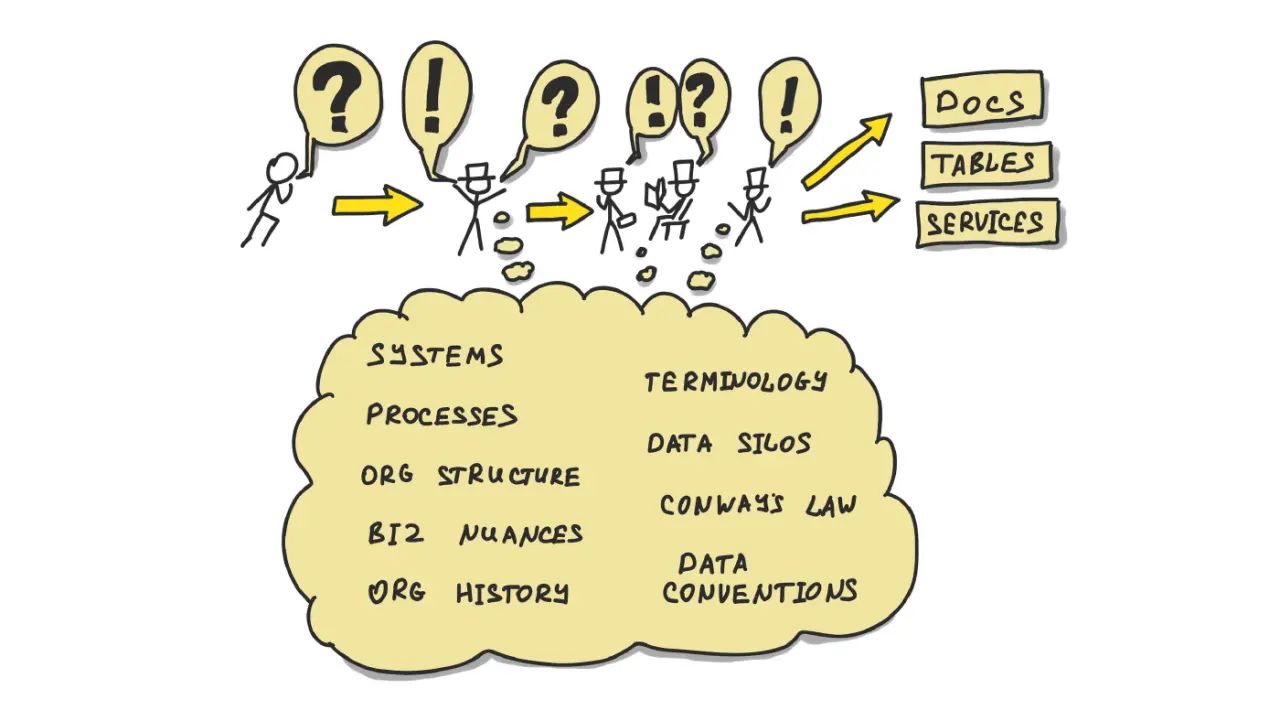 ?
!
?
!
?
!
DOCS
TABLES
SERVICES
SYSTEMS
PROCESSES
ORG STRUCTURE
BIZ NUANCES
ORG HISTORY
TERMINOLOGY
DATA SILOS
CONWAY'S LAW
DATA
CONVENTIONS